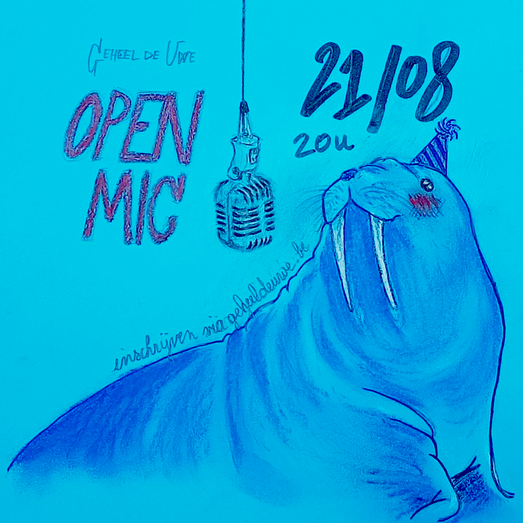 GEHEEL DE UWE
OPEN
MIC
21/08
20u
inschrijven via geheeldeuwe.be